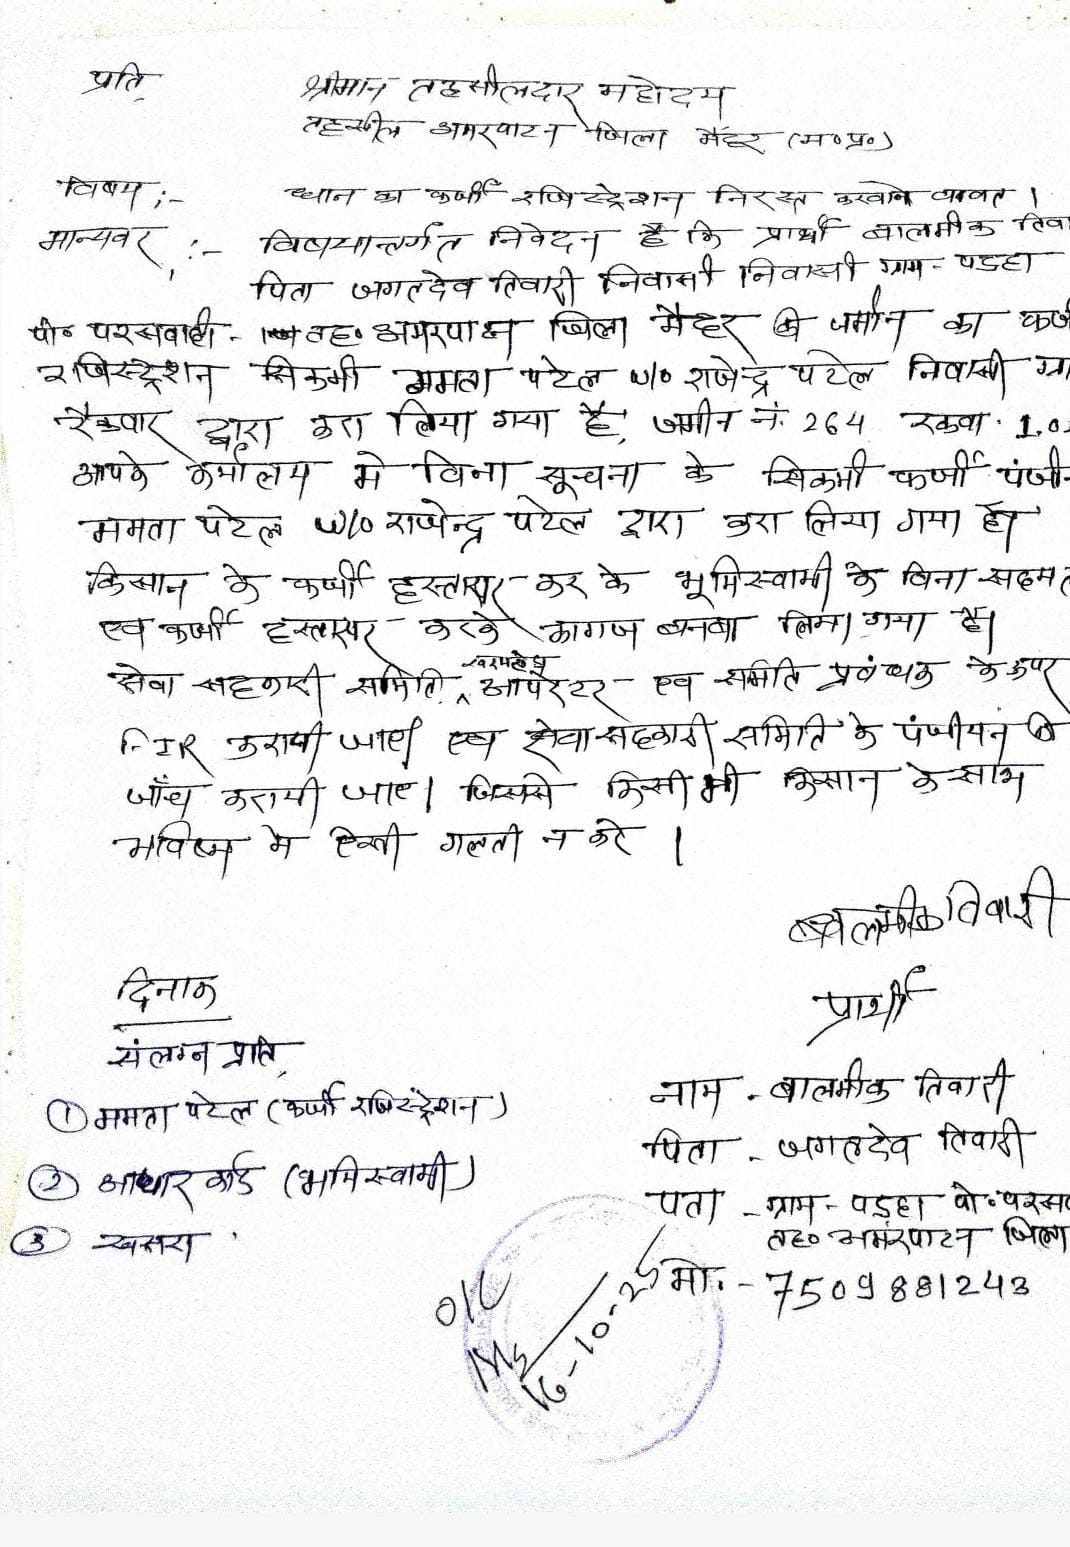 प्रति,
श्रीमान तहसीलदार महोदय
तहसील अमरपाटन जिला मैहर (म०प्र०)
विषय :- धान का फर्जी रजिस्ट्रेशन निरस्त करवाने बावत ।
मान्यवर, :- विषयान्तर्गत निवेदन है कि प्रार्थी बालमीक
पिता जगतदेव तिवारी निवासी निवासी ग्राम - पडहा
पो० परसवाही - तह० अमरपाटन जिला मैहर की जमीन का
रजिस्ट्रेशन सिकमी ममता पटेल w/o राजेन्द्र पटेल निवासी
रैकवार द्वारा करा लिया गया है, जमीन नं. 264 रकवा.
आपके कर्मालय मे विना सूचना के सिकमी फर्जी
ममता पटेल w/o राजेन्द्र पटेल द्वारा करा लिया गया है।
किसान के फर्जी हस्ताक्षर कर के भूमिस्वामी के विना
एव फर्जी हस्ताक्षर करके कागज बनवा लिया गया है।
सेवा सहकारी समिति, आपरेटर एव समिति प्रवंधक के ऊपर
FIR करायी जाए एव सेवा सहकारी समिति के पंजीयन की
जाँच करायी जाए। जिससे किसी भी किसान के साथ
भविष्य मे ऐसी गलती न करे ।
बालमीक तिवारी
दिनाक
प्रार्थी
संलग्न प्रति,
① ममता पटेल (फर्जी रजिस्ट्रेशन)
② आधार कार्ड (भूमिस्वामी)
③ खसरा
नाम - बालमीक तिवारी
पिता - जगतदेव तिवारी
पता - ग्राम - पडहा पो०
तह० अमरपाटन जिला
मो. - 7509881243
16-10-25